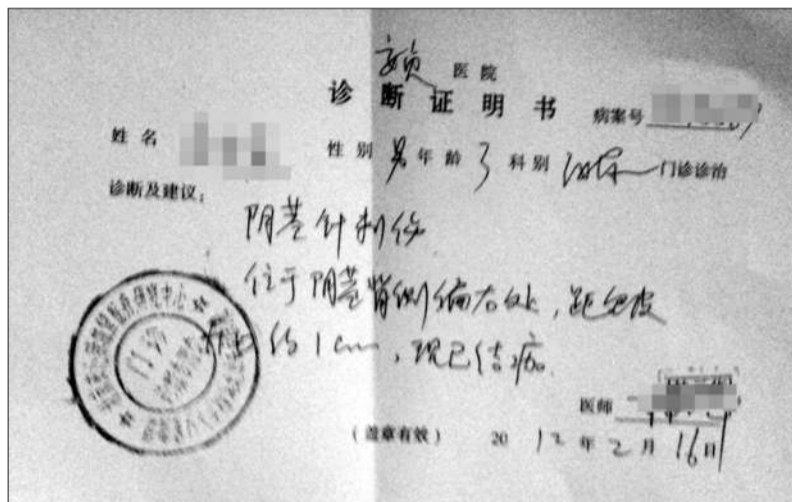 安贞医院
诊断证明书
病案号
姓名 性别 男 年龄 3 科别 泌尿 门诊诊治
诊断及建议：
阴茎针刺伤
位于阴茎背侧偏右处，距包皮
约1cm，现已结痂。
医师
（盖章有效） 2012年2月16日
门诊